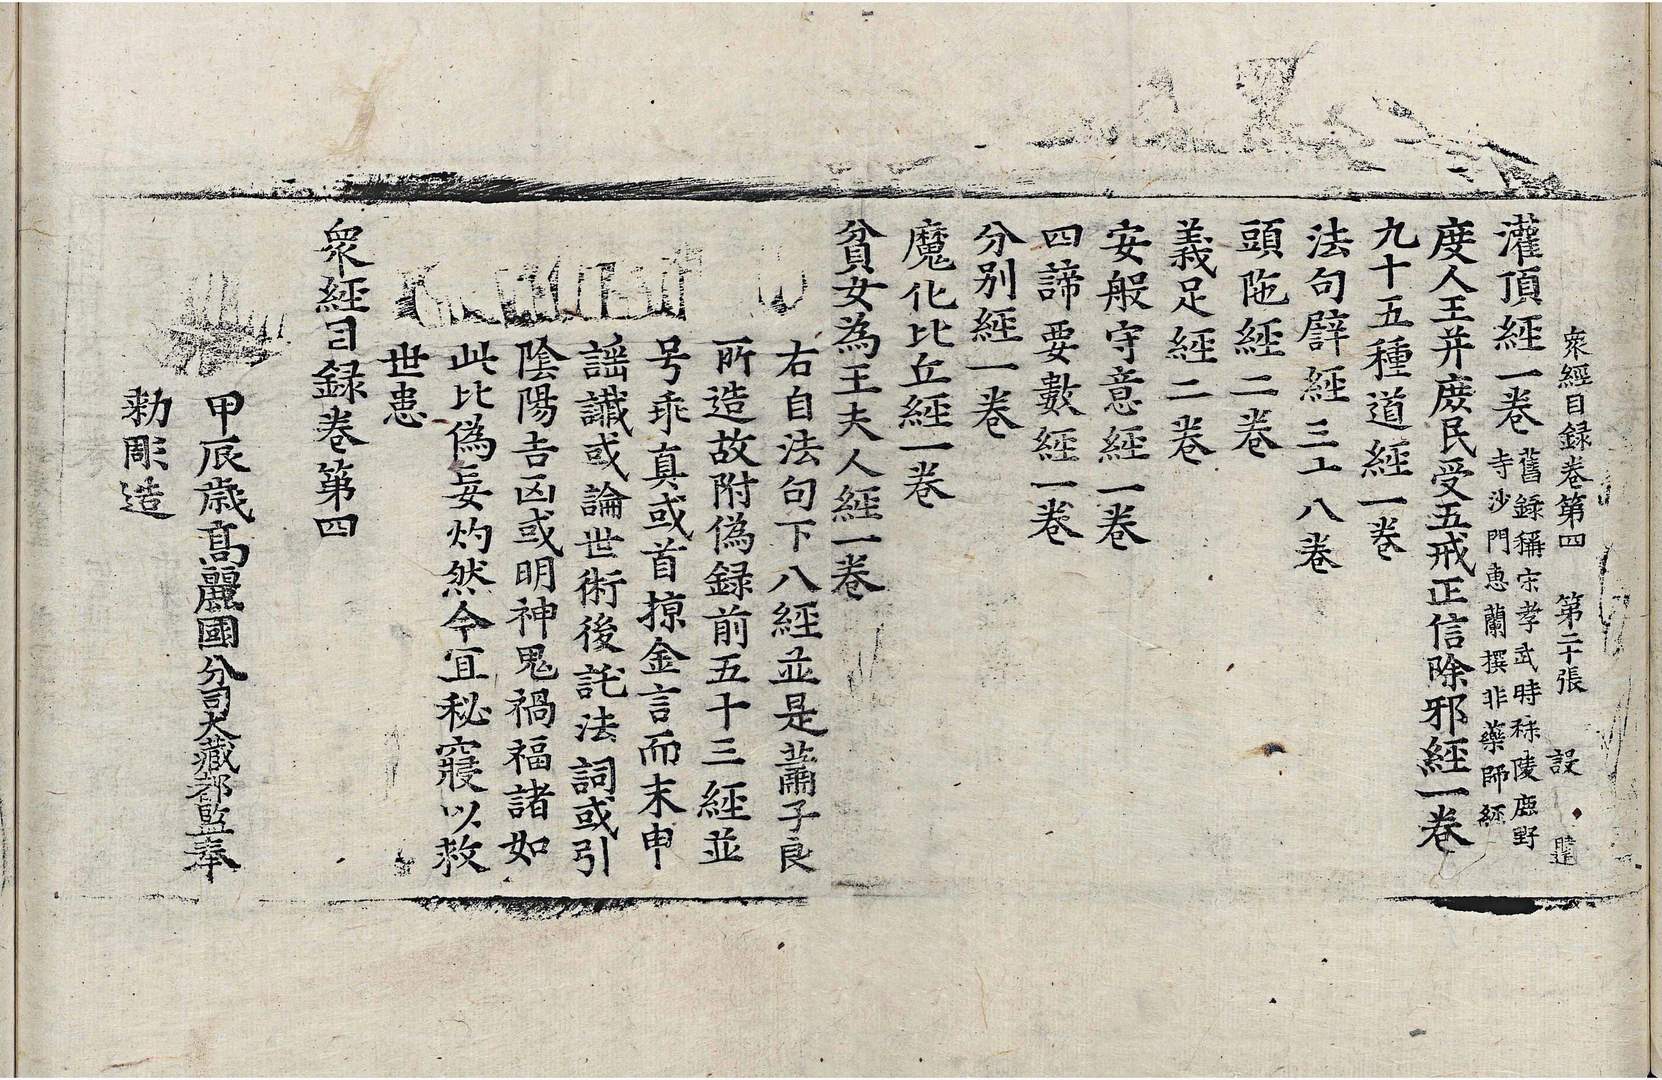 衆經目録卷第四 第二十張 設
灌頂經一卷
舊録稱宋孝武時秣陵鹿野
寺沙門惠蘭撰非藥師經
度人王并庶民受五戒正信除邪經一卷
九十五種道經一卷
法句譬經三十八卷
頭陁經二卷
義足經二卷
安般守意經一卷
四諦要數經一卷
分別經一卷
魔化比丘經一卷
貧女為王夫人經一卷
右自法句下八經並是蕭子良
所造故附偽録前五十三經並
号乖真或首掠金言而末申
謡讖或論世術後託法詞或引
陰陽吉凶或明神鬼禍福諸如
此比偽妄灼然今宜秘寢以救
世患
衆經目録卷第四
甲辰歳高麗國分司大藏都監奉
勑彫造